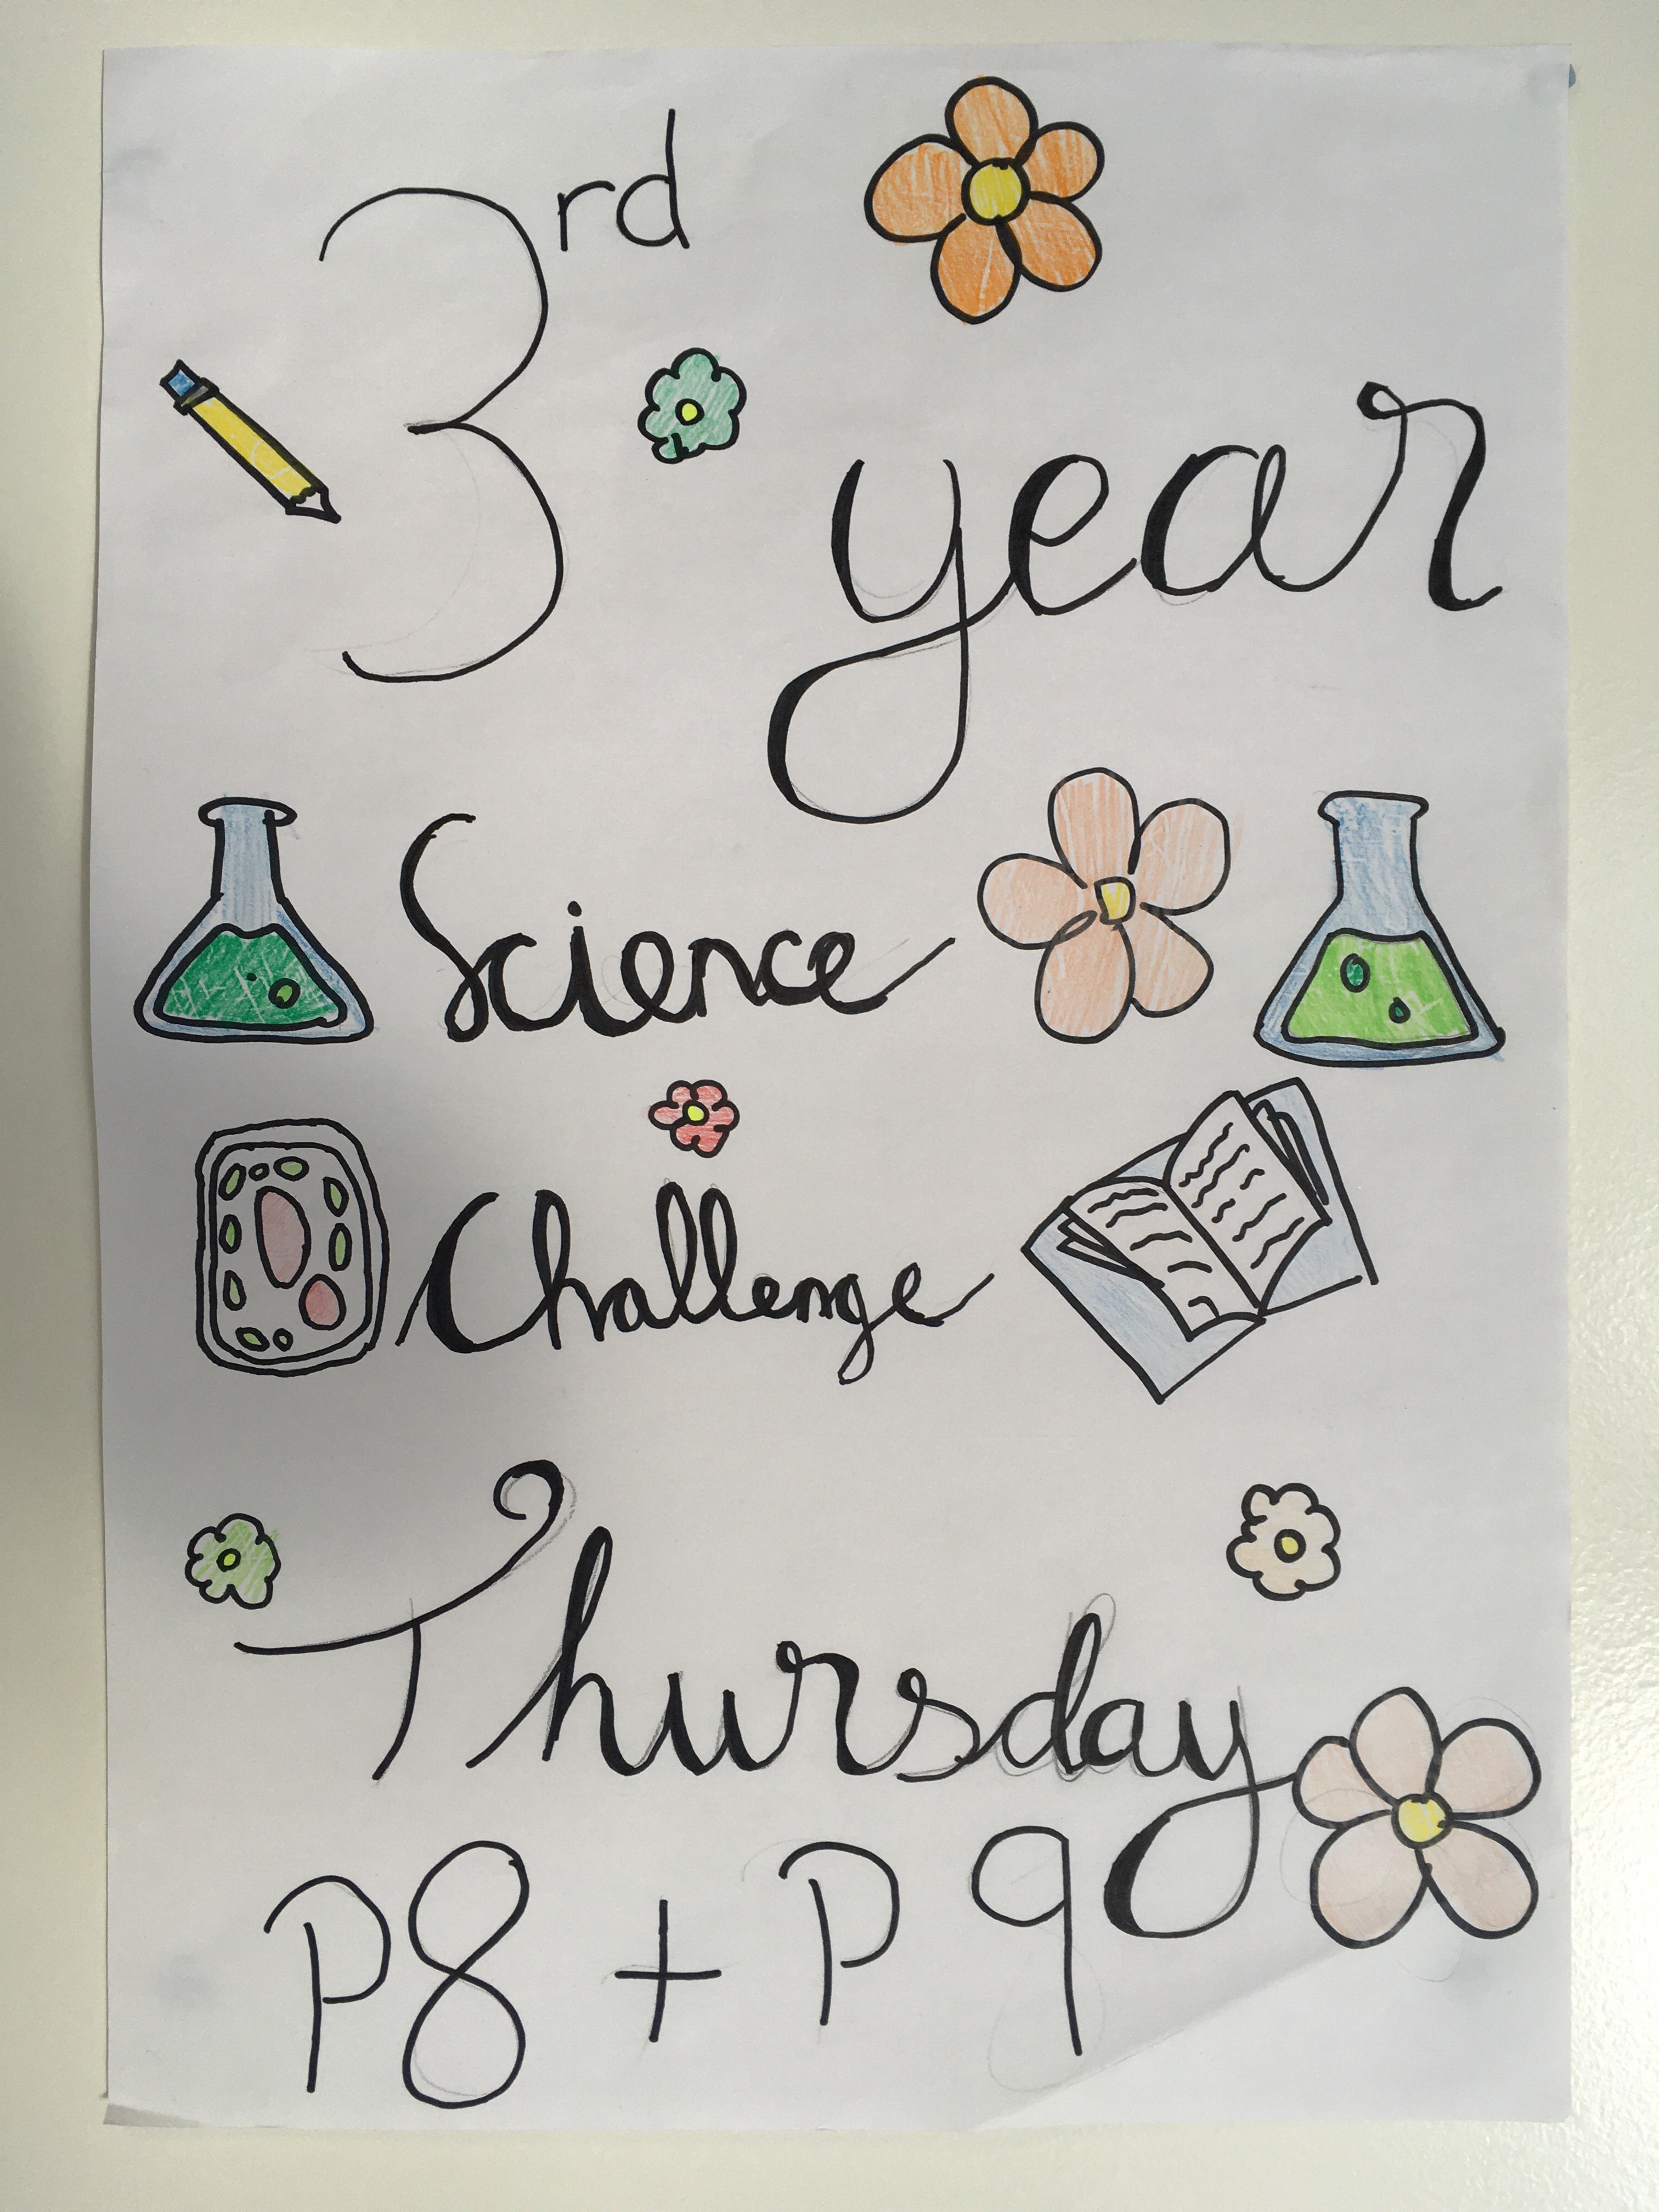 3rd year
Science
Challenge
Thursday
P8 + P9